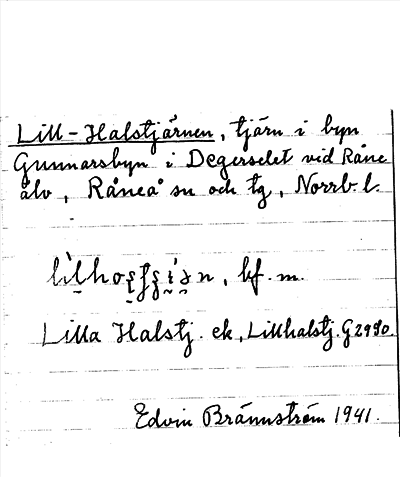 Lill-Halstjärnen, tjärn i byn
Gunnarsbyn i Degerselet vid Råne
älv, Råneå sn och tg, Norrb. l.
bf. m.
Lilla Halstj. ek, Lillhalstj. G 2990.
Edvin Brännström 1941.